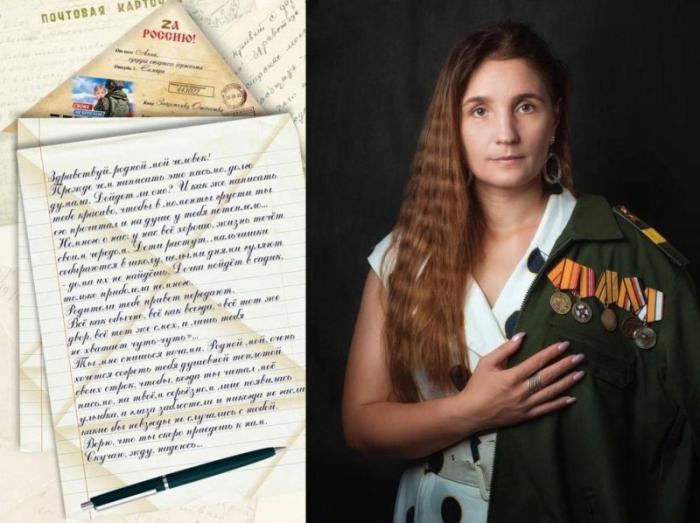 ПОЧТОВАЯ КАРТОЧ
ZA
РОССИЮ!
От кого Анна,
супруга старшего сержанта
Откуда г. Самара
443022
Кому Защитнику Отечества
Здравствуй, родной мой человек!
Прежде чем написать это письмо, долго
думала. Дойдет ли оно? И как же написать
тебе красиво, чтобы в моменты грусти ты
его прочитал и на душе у тебя потеплело...
Немного о нас: у нас всё хорошо, жизнь течёт
своим чередом. Дети растут, мальчишки
собираются в школу, целыми днями гуляют
- дома их не найдёшь. Дочка пойдёт в садик,
только приболела немного.
Родители тебе привет передают.
Всё как обычно, всё как всегда, "всё тот же
двор, всё тот же смех, и лишь тебя
не хватает чуть-чуть"...
Ты мне снишься ночами. Родной мой, очень
хочется согреть тебя душевной теплотой
своих строк, чтобы, когда ты читал моё
письмо, на твоём серьёзном лице появилась
улыбка, а глаза заблестели и никогда не гасли,
какие бы невзгоды не случались с тобой.
Верю, что ты скоро приедешь к нам.
Скучаю, жду, надеюсь...